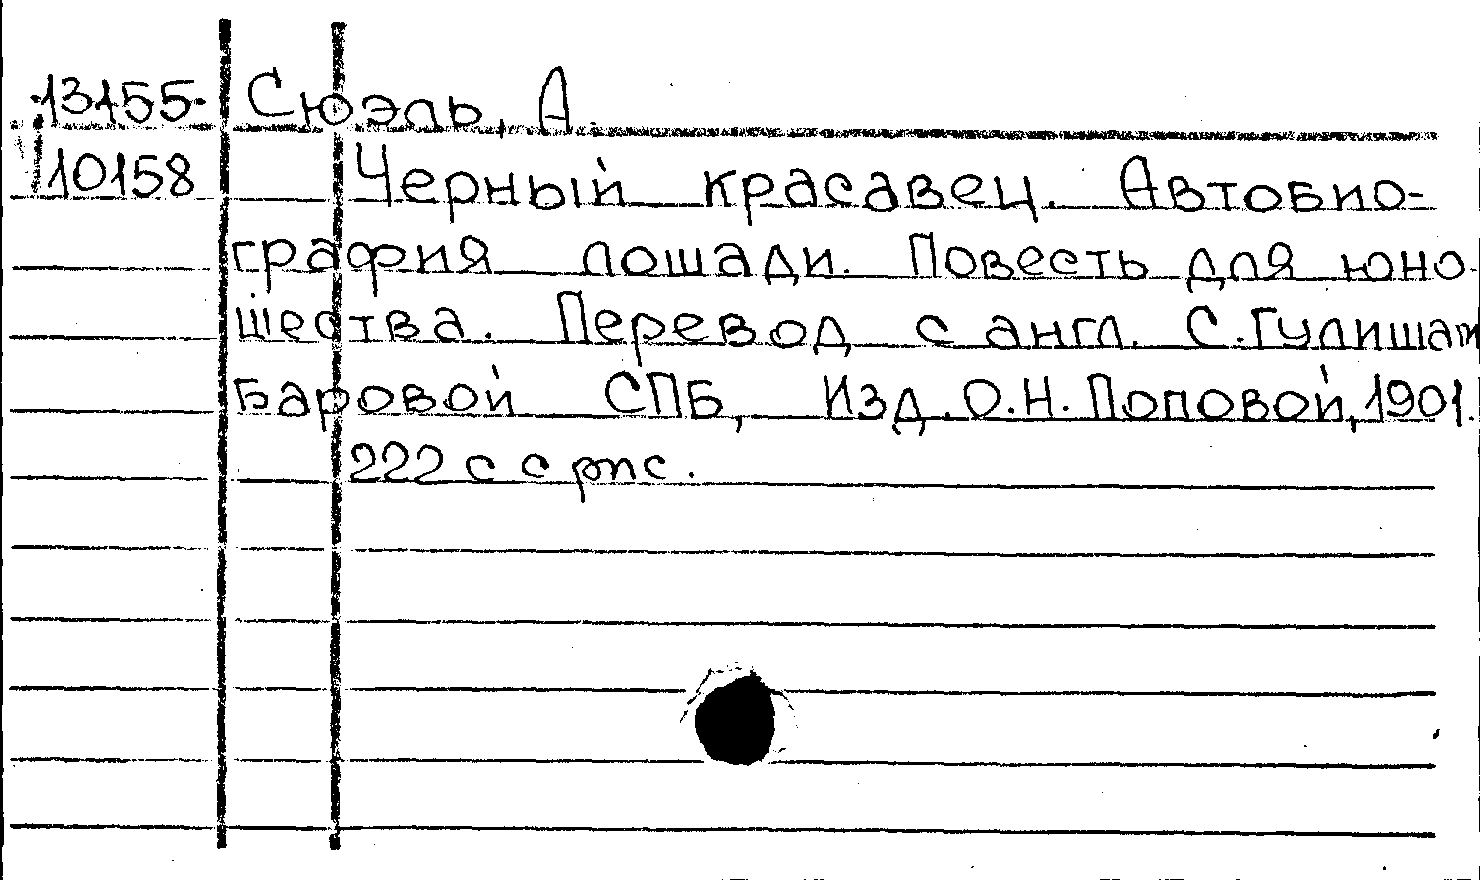 13155 Сюэль, А.
10158 Черный красавец. Автобио-
графия лошади. Повесть для юно-
шества. Перевод с англ. С.Гулишам
баровой СПБ, Изд. О.Н. Поповой, 1901.
222 с с рис.